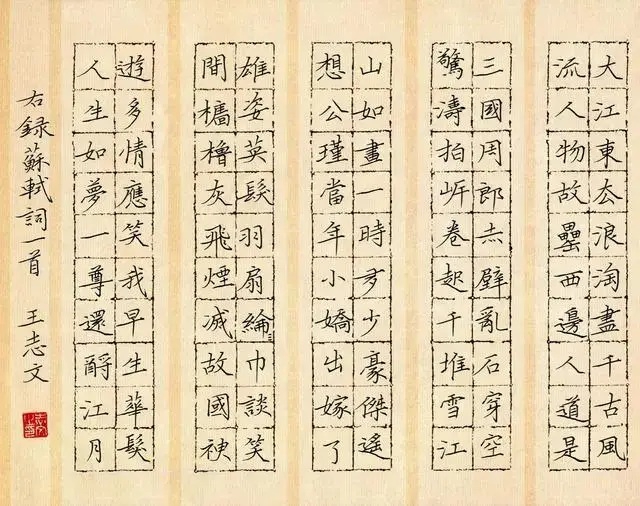 大江東去浪淘盡千古風
流人物故壘西邊人道是
三國周郎赤壁亂石穿空
驚濤拍岸卷起千堆雪江
山如畫一時多少豪傑遙
想公瑾當年小嬌出嫁了
雄姿英髮羽扇綸巾談笑
間檣櫓灰飛煙滅故國神
遊多情應笑我早生華髮
人生如夢一尊還酹江月
右録蘇軾詞一首 王志文